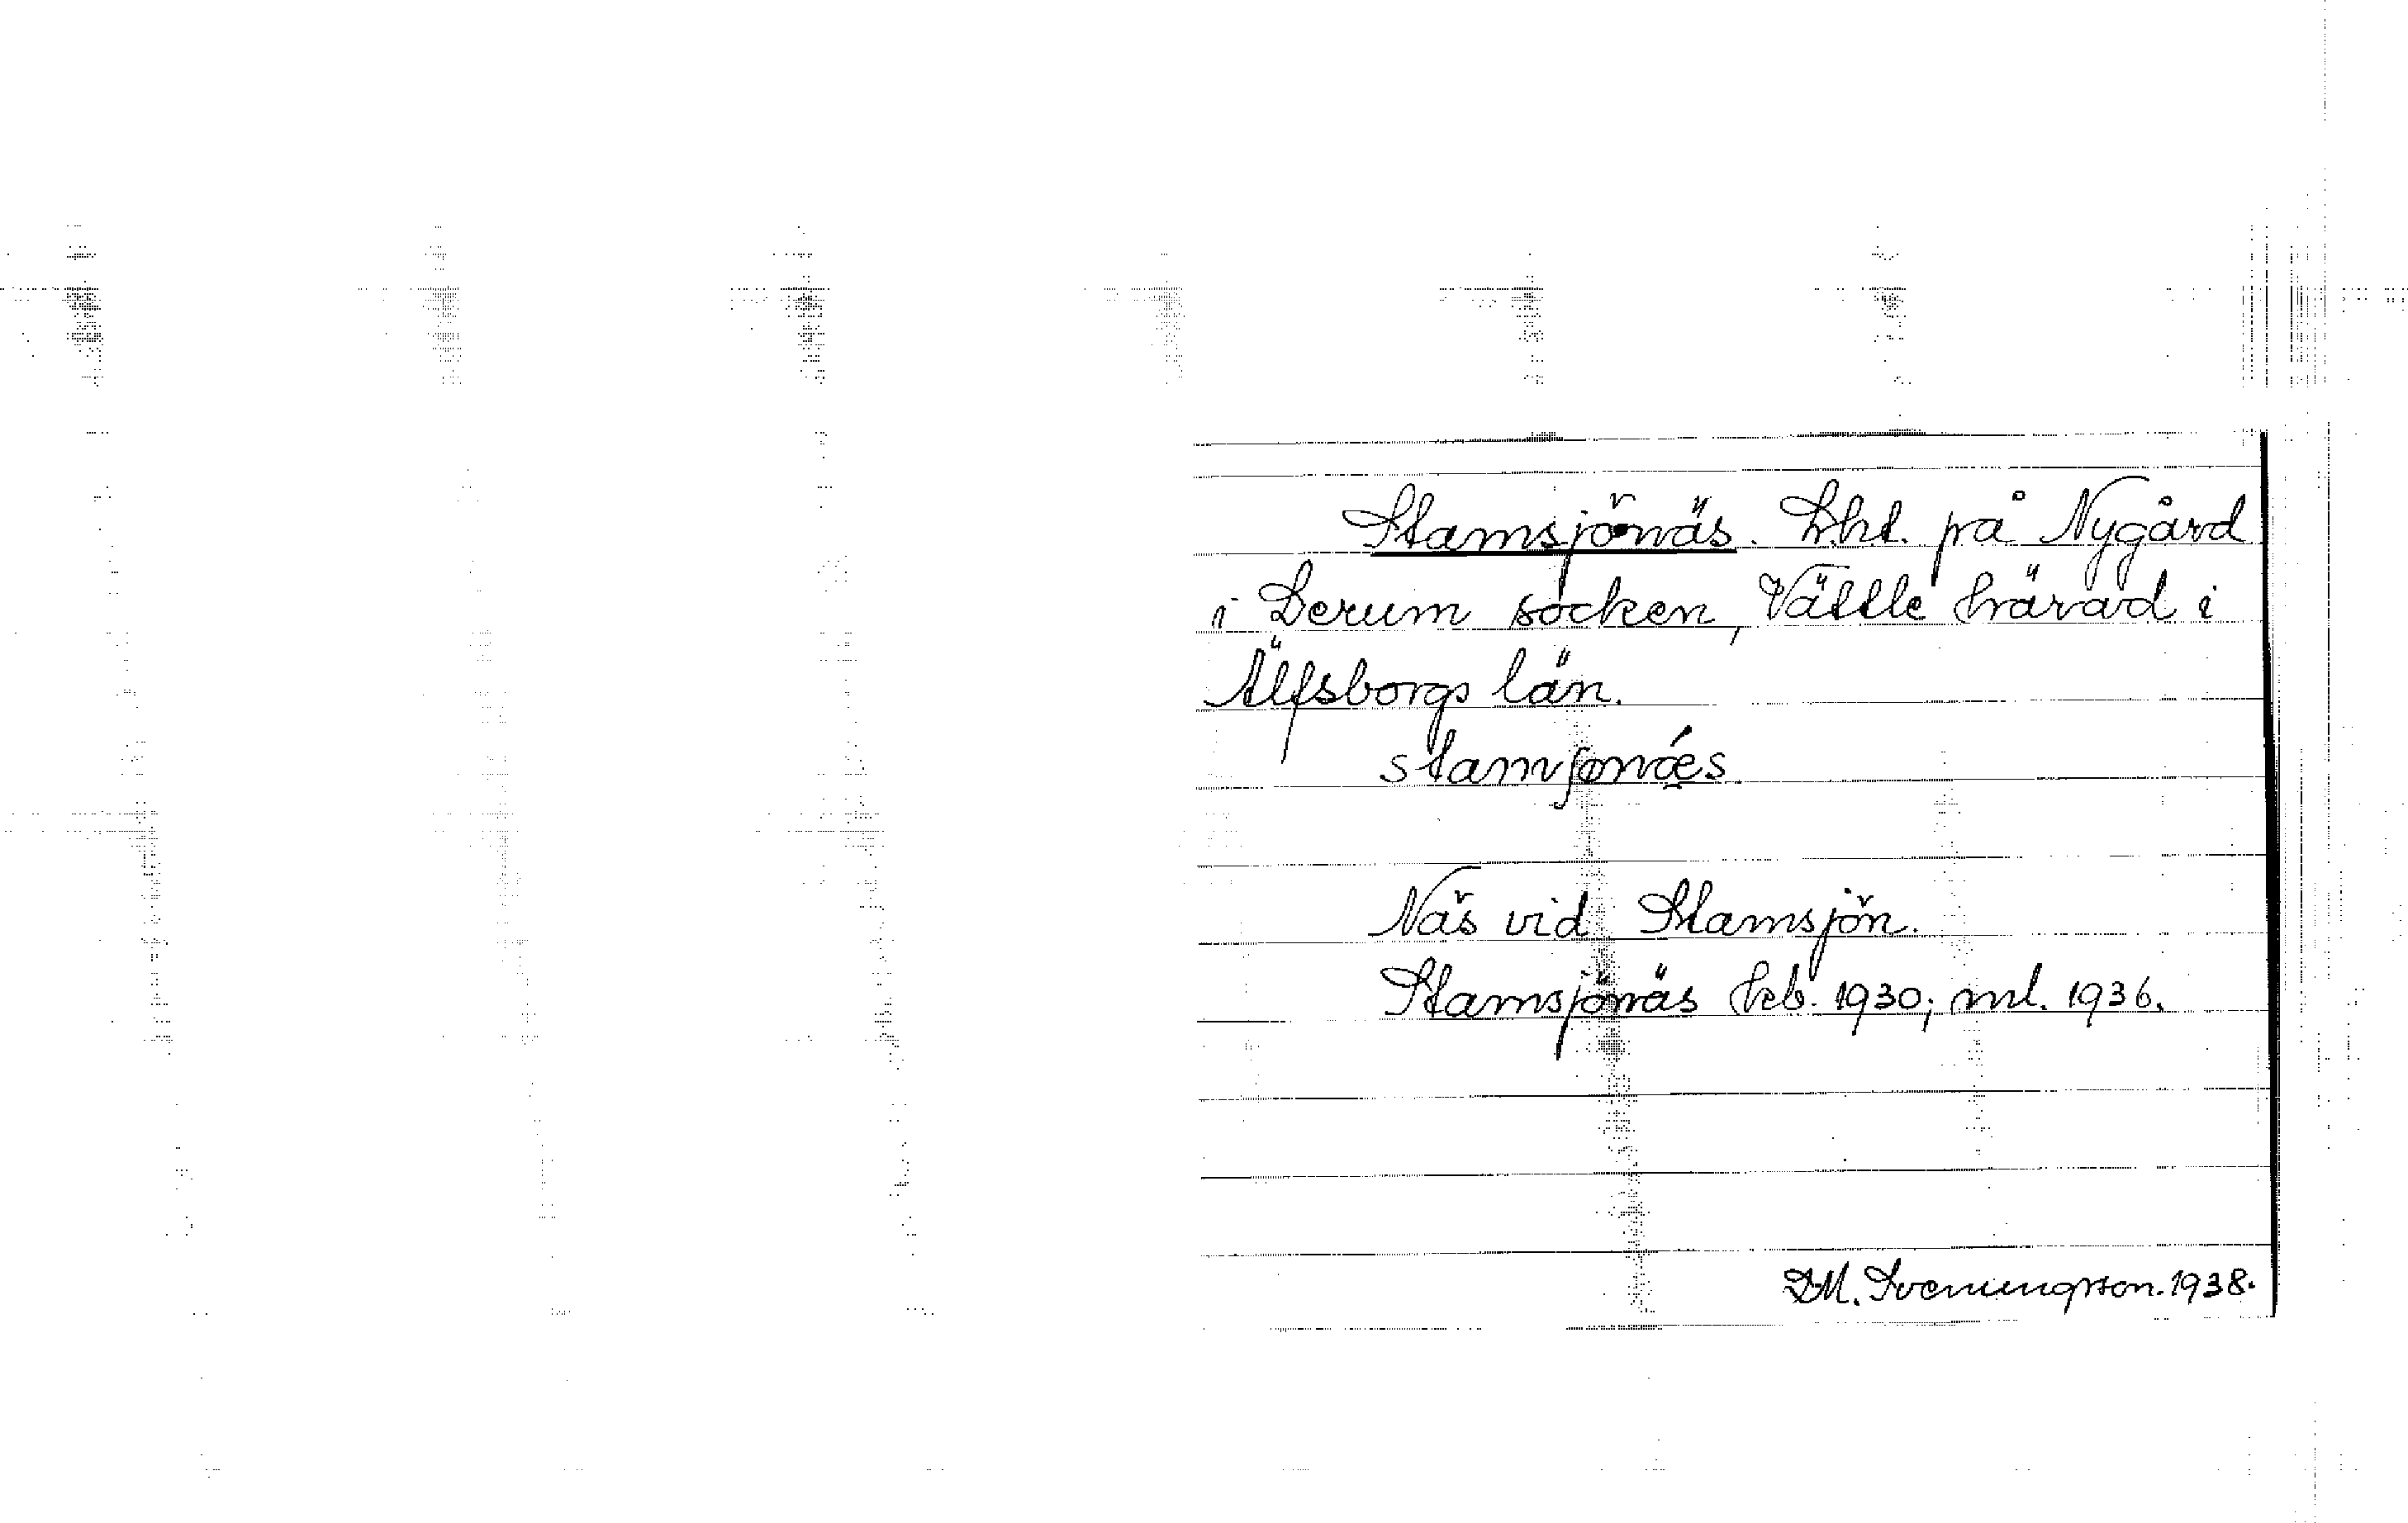 Stamsjönäs. Lht. på Nygård
i Lerum socken, Vättle härad i
Älfsborgs län.
stamʃønæ̀s
Näs vid Stamsjön.
Stamsjönäs hfb. 1930; ml. 1936.
D.M. Sveningsson. 1938.